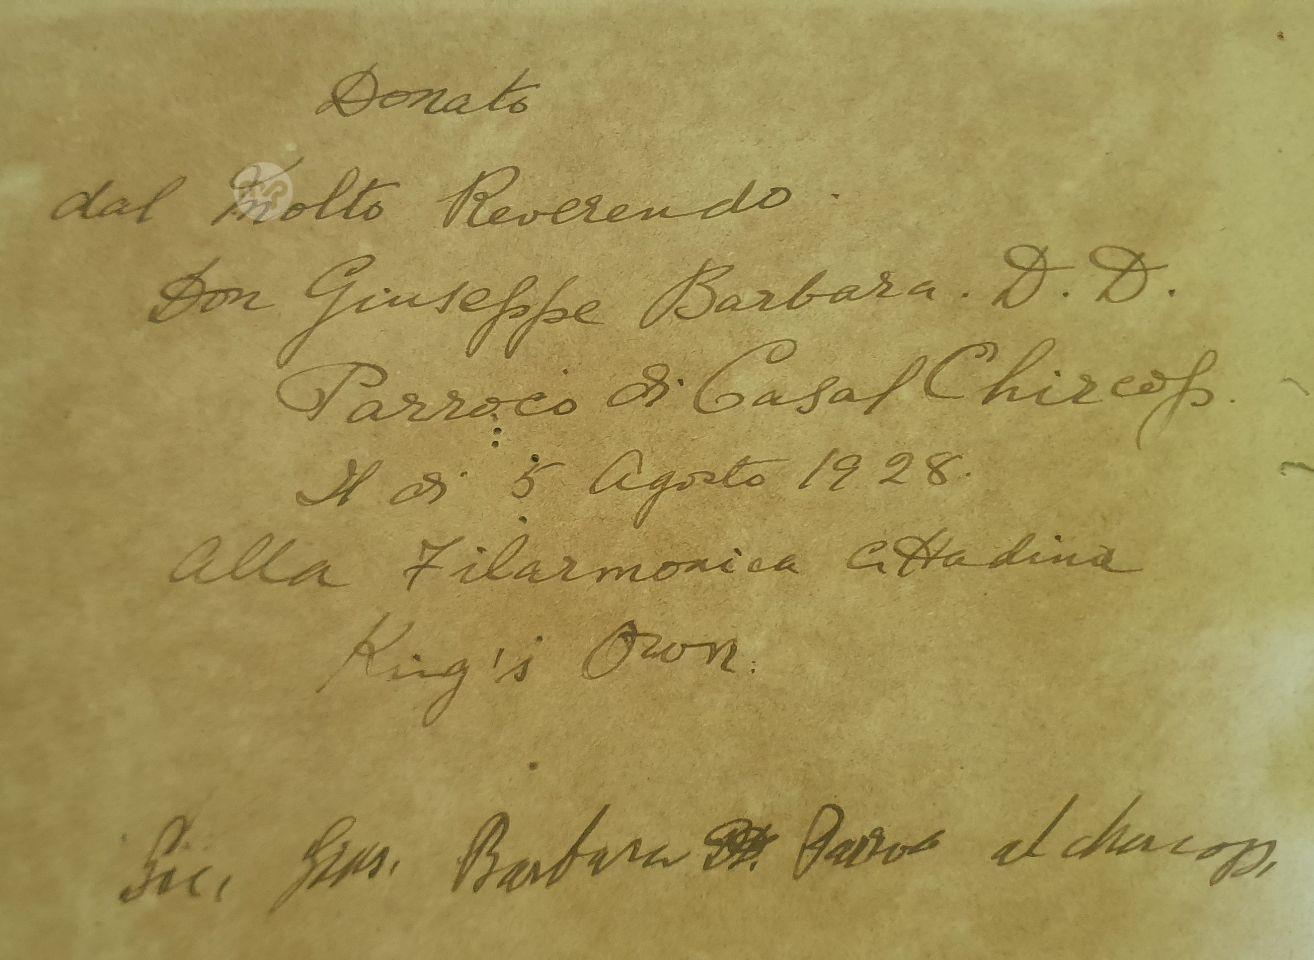 Donato
dal Molto Reverendo.
Don Giuseppe Barbara. D. D.
Parroco di Casal Chircop.
Il di 5 Agosto 1928.
Alla Filarmonica Cittadina
King's Own.
Sac. Gius. Barbara